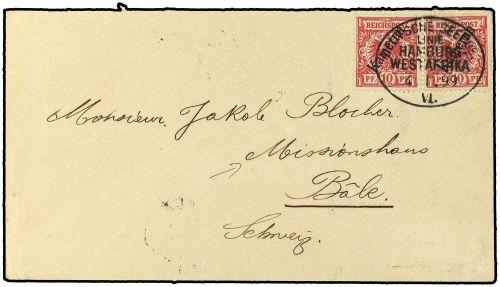 REICHSPOST REICHSPOST
LINIE
HAMBURG
WESTAFRIKA
99
VI.
PF. 10 PF. PF. 10 PF.
Monsieur Jakob Blocher.
Missionshaus
Bâle.
Schweiz.